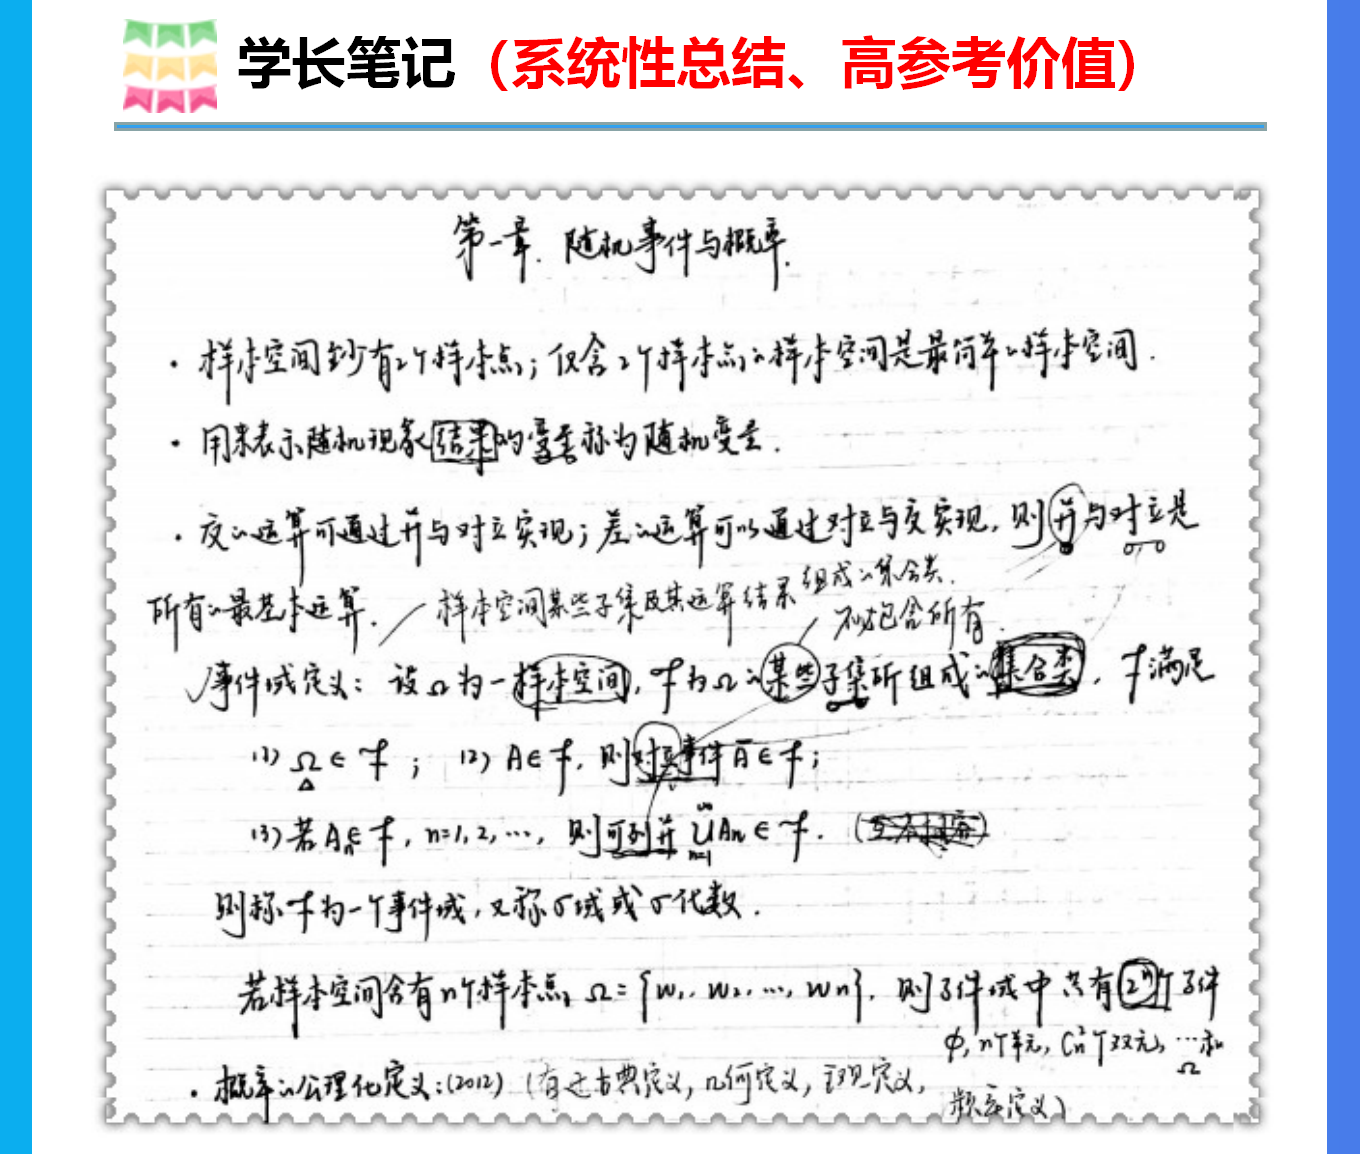 学长笔记（系统性总结、高参考价值）
第一章. 随机事件与概率.
· 样本空间至少有2个样本点; 仅含2个样本点的样本空间是最简单的样本空间.
· 用来表示随机现象结果的变量称为随机变量.
· 交的运算可通过并与对立实现; 差的运算可以通过对立与交实现, 则并与对立是
所有的最基本运算.
样本空间某些子集及其运算结果组成的集合类.
不必包含所有.
事件域定义: 设Ω为一样本空间, F为Ω的某些子集所组成的集合类, F满足
(1) Ω∈F; (2) A∈F, 则对立事件Ā∈F;
(3) 若Aₙ∈F, n=1,2,…, 则可列并 ⋃ₙ₌₁^∞ Aₙ∈F.
则称F为一个事件域, 又称σ域或σ代数.
若样本空间含有n个样本点, Ω={w₁, w₂, …, wn}, 则事件域中共有2ⁿ个事件
φ, n个单元, Cₙ²个双元, …和Ω
· 概率的公理化定义:(2012) (有古典定义, 几何定义, 主观定义,
频率定义)